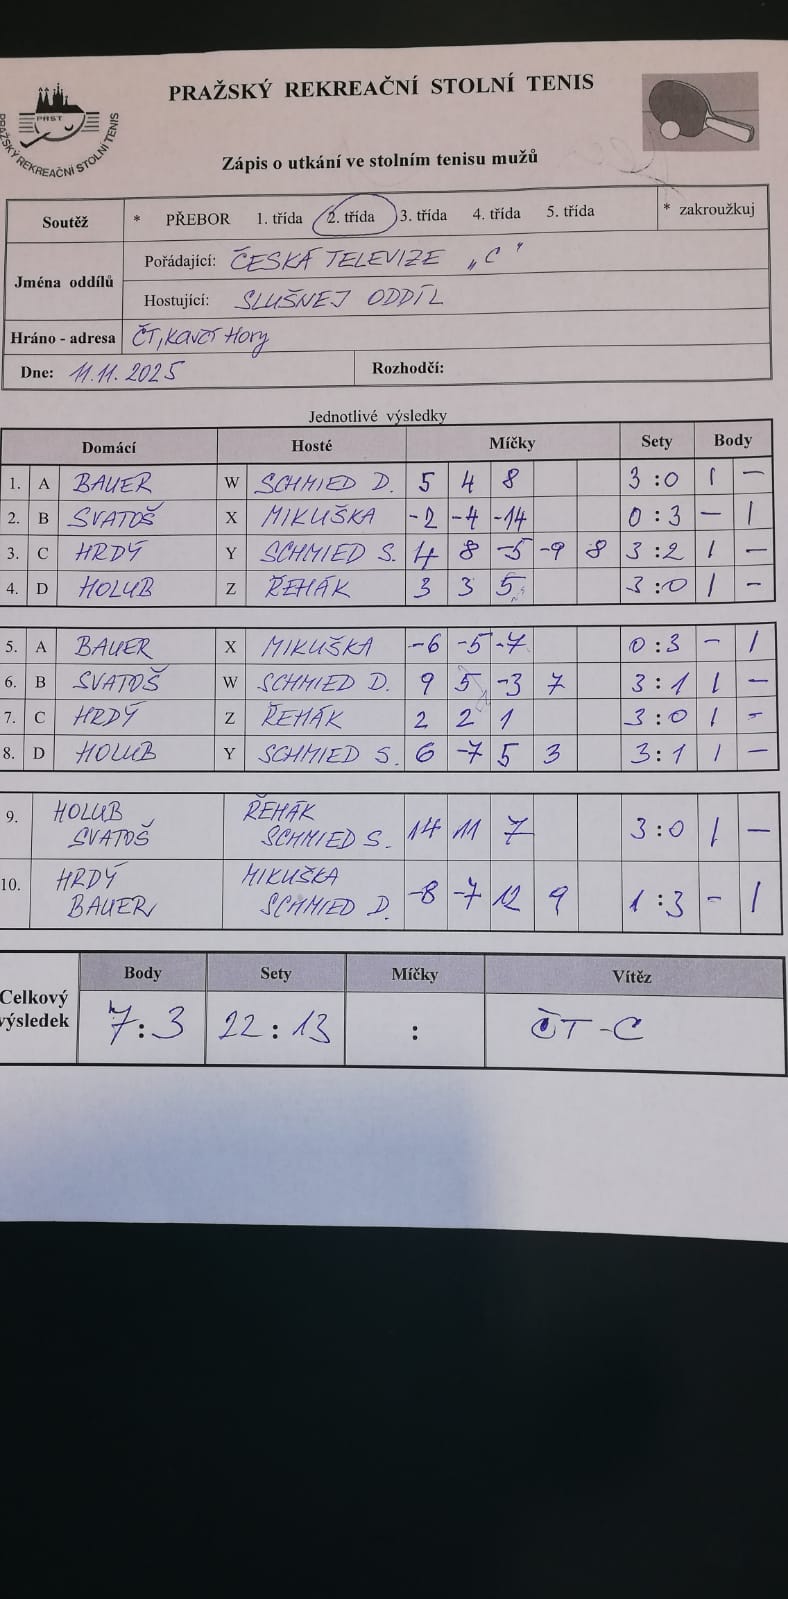 PRAŽSKÝ REKREAČNÍ STOLNÍ TENIS
PRST
PRAŽSKÝ REKREAČNÍ STOLNÍ TENIS
Zápis o utkání ve stolním tenisu mužů
Soutěž * PŘEBOR 1. třída 2. třída 3. třída 4. třída 5. třída * zakroužkuj
Jména oddílů
Pořádající: ČESKÁ TELEVIZE „C"
Hostující: SLUŠNEJ ODDÍL
Hráno - adresa ČT, Kavčí Hory
Dne: 11.11.2025 Rozhodčí:
Jednotlivé výsledky
Domácí Hosté Míčky Sety Body
1. A BAUER W SCHMIED D. 5 4 8 3:0 1 -
2. B SVATOŠ X MIKUŠKA -2 -4 -14 0:3 - 1
3. C HRDÝ Y SCHMIED S. 4 8 -5 -9 8 3:2 1 -
4. D HOLUB Z ŘEHÁK 3 3 5 3:0 1 -
5. A BAUER X MIKUŠKA -6 -5 -7 0:3 - 1
6. B SVATOŠ W SCHMIED D. 9 5 -3 7 3:1 1 -
7. C HRDÝ Z ŘEHÁK 2 2 1 3:0 1 -
8. D HOLUB Y SCHMIED S. 6 -7 5 3 3:1 1 -
9. HOLUB ŘEHÁK
SVATOŠ SCHMIED S. 14 11 7 3:0 1 -
10. HRDÝ MIKUŠKA
BAUER SCHMIED D. -8 -7 12 9 1:3 - 1
Celkový výsledek
Body Sety Míčky Vítěz
7:3 22:13 : ČT-C